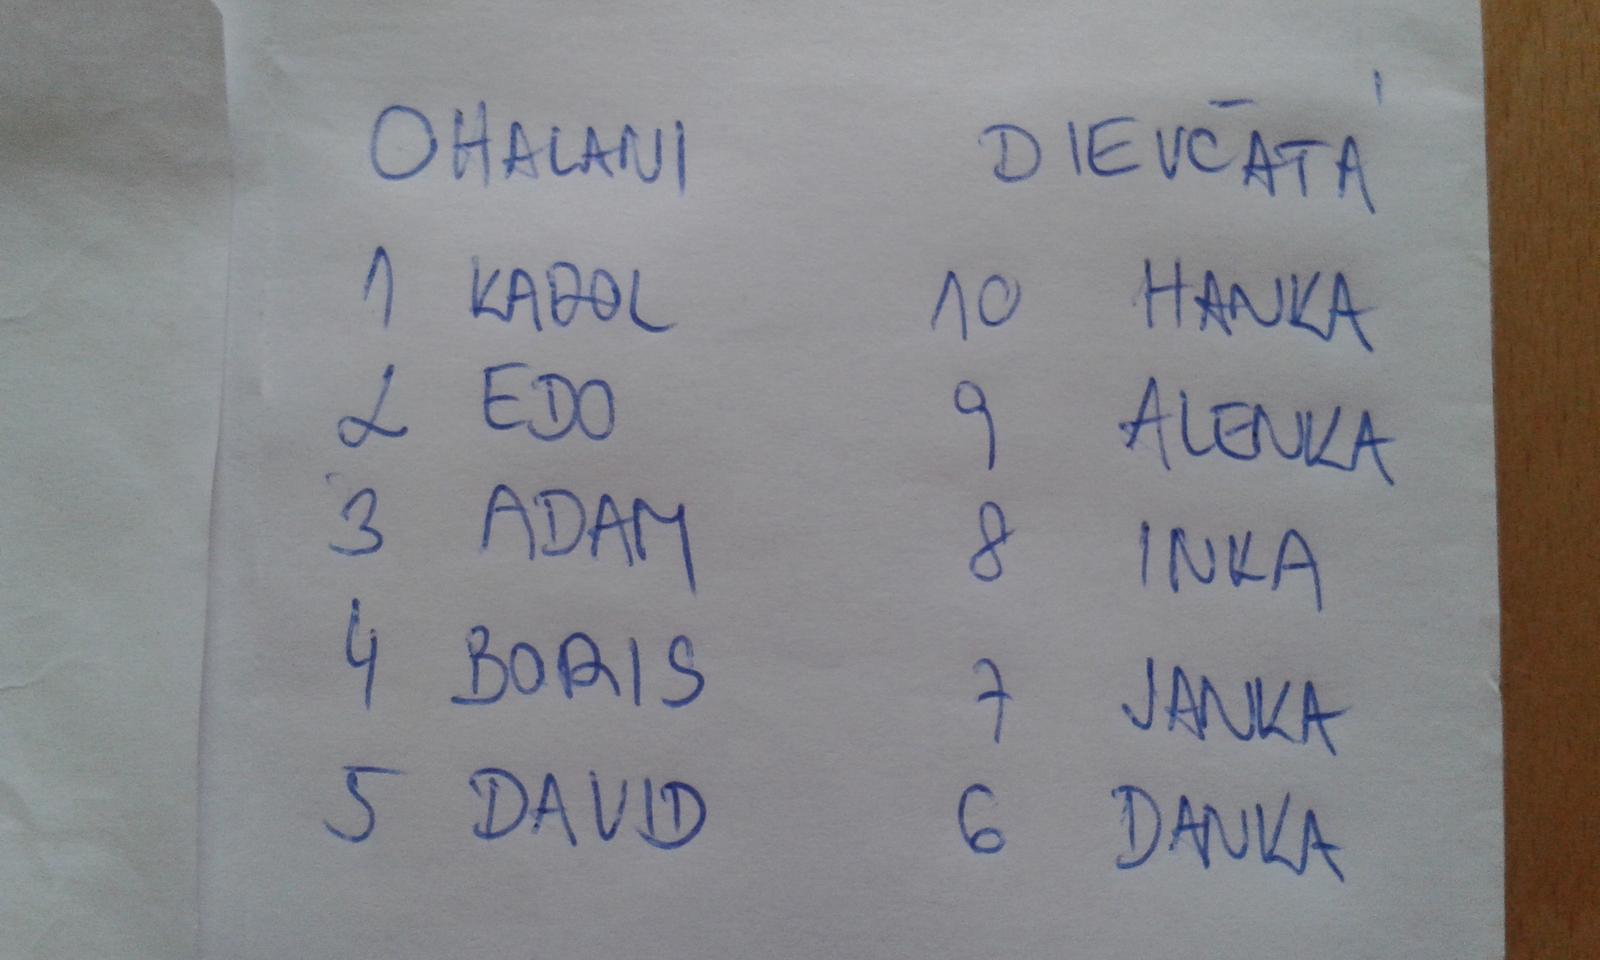 OHALANI DIEVČATÁ
1 KAROL 10 HANKA
2 EDO 9 ALENKA
3 ADAM 8 INKA
4 BORIS 7 JANKA
5 DAVID 6 DANKA